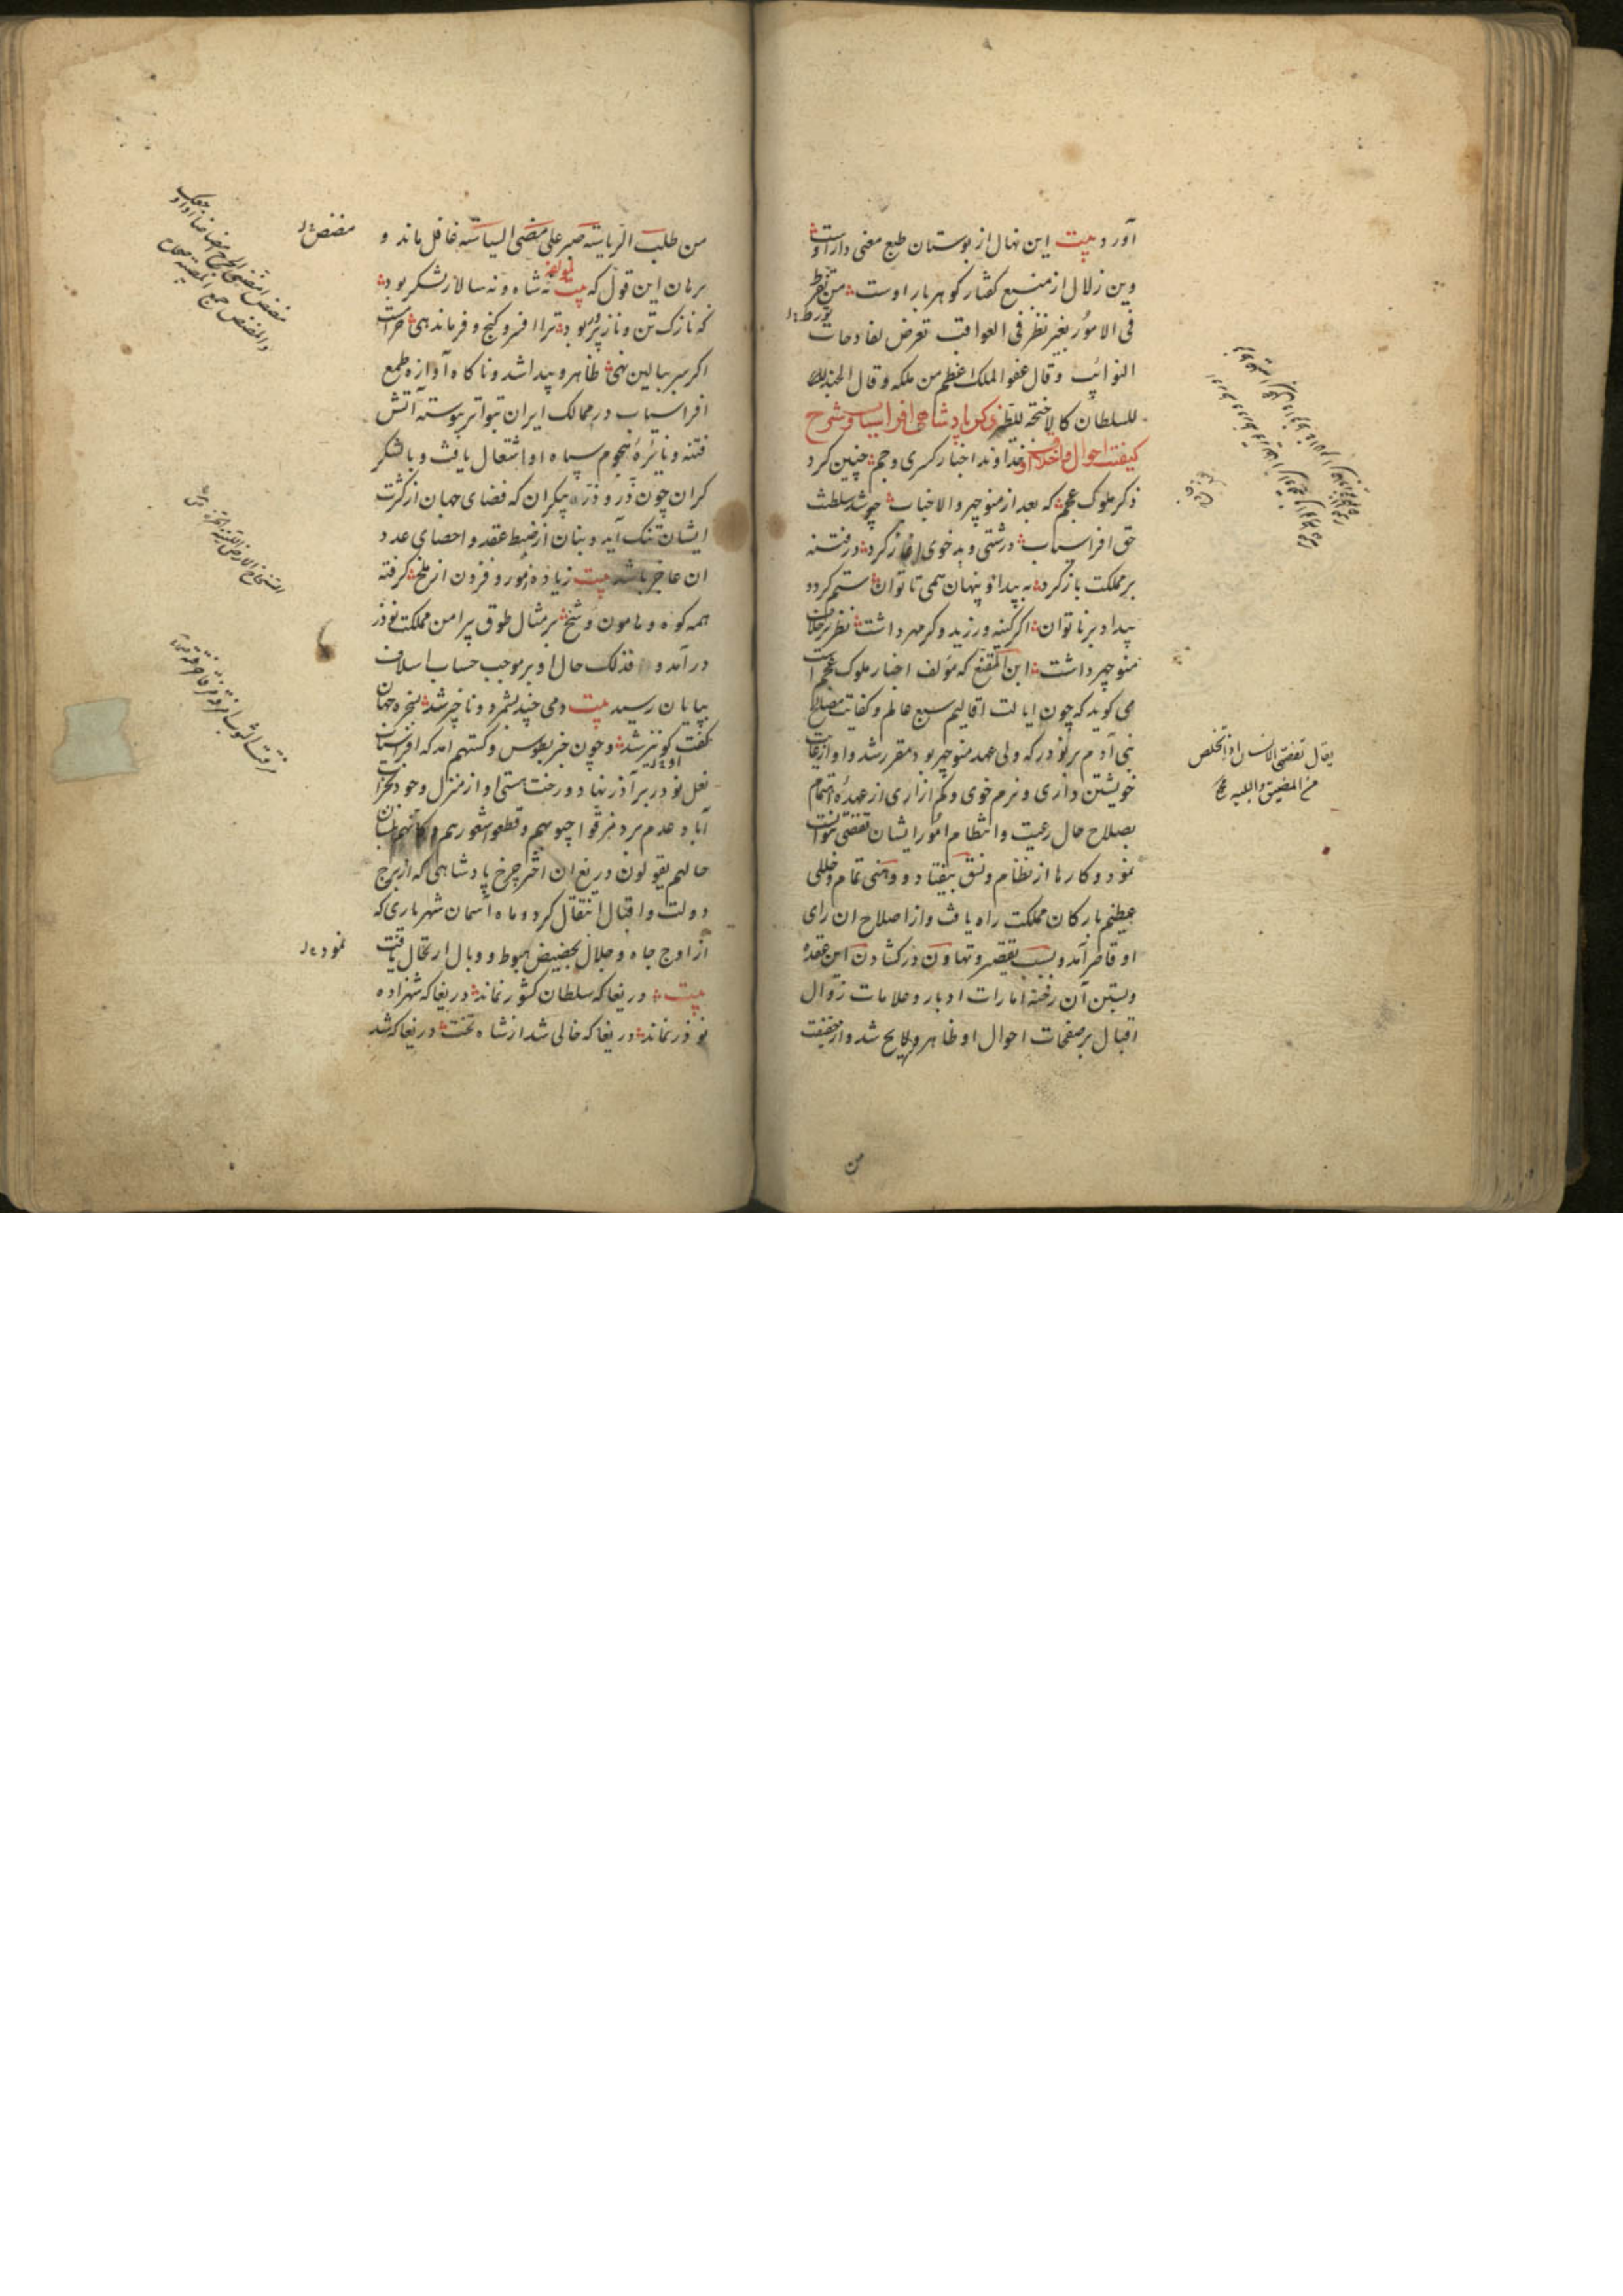 آورد بیت این نهال از بوستان طبع معنی دار اوست
وین زلال از منبع کفتار کوهربار اوست من نظر
فی الامور بغیر نظر فی العواقب تعرض لفادحات
النوائب وقال عفو الملک اعظم من ملکه وقال الجند
للسلطان کالاجنحة للطیر ذکر پادشاهی افراسیاب وشرح
کیفیت احوال واخلاق او خداوند اخبار کسری وجم چنین کرد
ذکر ملوک عجم که بعد از منوچهر والاجناب چو شد سلطنت
حق افراسیاب درشتی وبدخوی آغاز کرد در فتنه
بر مملکت باز کرد به پیدا و پنهان همی تا توان ستم کرد و
بیداد بر ناتوان اکر کینه ورزید وکر مهر داشت نظر بر خلاف
منوچهر داشت ابن المقفع که مؤلف اخبار ملوک عجم است
می کوید که چون ایالت اقالیم سبع عالم وکفایت مصالح
بنی آدم بر نوذر که ولی عهد منوچهر بود مقرر شد واو از غایت
خویشتن داری ونرم خوی وکم ازاری از عهدهٔ اهتمام
بصلاح حال رعیت وانتظام امور ایشان تفصی نتوانست
نمود وکارها از نظام ونسق بیفتاد و وهنی تمام وخللی
عظیم بارکان مملکت راه یافت واز اصلاح ان رای
او قاصر آمد وبسبب تقصیر وتهاون در کشادن این عقده
وبستن آن رخنه امارات ادبار وعلامات زوال
اقبال بر صفحات احوال او ظاهر ولایح شد واز حقیقت
من
یقال تفصی الانسان اذا تخلص
من المضیق والبلیه
من طلب الریاسة صبر علی مضض السیاسة غافل ماند و
برهان این قول که بیت نه شاه ونه سالار لشکر بود
که نازک تن وناز پرور بود ترا افسر وکنج وفرماندهی حرامست
اکر سر ببالین نهی ظاهر وپیدا شد وناکاه آوازه طمع
افراسیاب در ممالک ایران بتواتر پیوسته آتش
فتنه ونائرهٔ هجوم سپاه او اشتعال یافت وبا لشکر
کران چون ذر و ذره بیکران که فضای جهان از کثرت
ایشان تنک آید وبنان از ضبط عقد واحصای عدد
ان عاجز باشد بیت زیاده ز مور وفزون از ملخ کرفته
همه کوه وهامون وشخ بر مثال طوق پیرامن مملکت نوذر
در آمد و فذلک حال او بر موجب حساب اسلاف
بپایان رسید بیت دمی چند بشمرد وناچیز شد
وچون خبر بطوس وکستهم امد که افراسیاب
نعل نوذر بر آذر نهاد ورخت هستی او از منزل وجود بخراب
آباد عدم برد فمزقوا جیوبهم وقطعوا شعورهم وکانهم بلسان
حالهم یقولون دریغ ان اختر چرخ پادشاهی که از برج
دولت واقبال انتقال کرد وماه آسمان شهریاری که
از اوج جاه وجلال بحضیض هبوط ووبال ارتحال یافت
بیت دریغا که سلطان کشور نماند دریغا که شهزاده
نوذر نماند دریغا که خالی شد از شاه تخت دریغا که شد